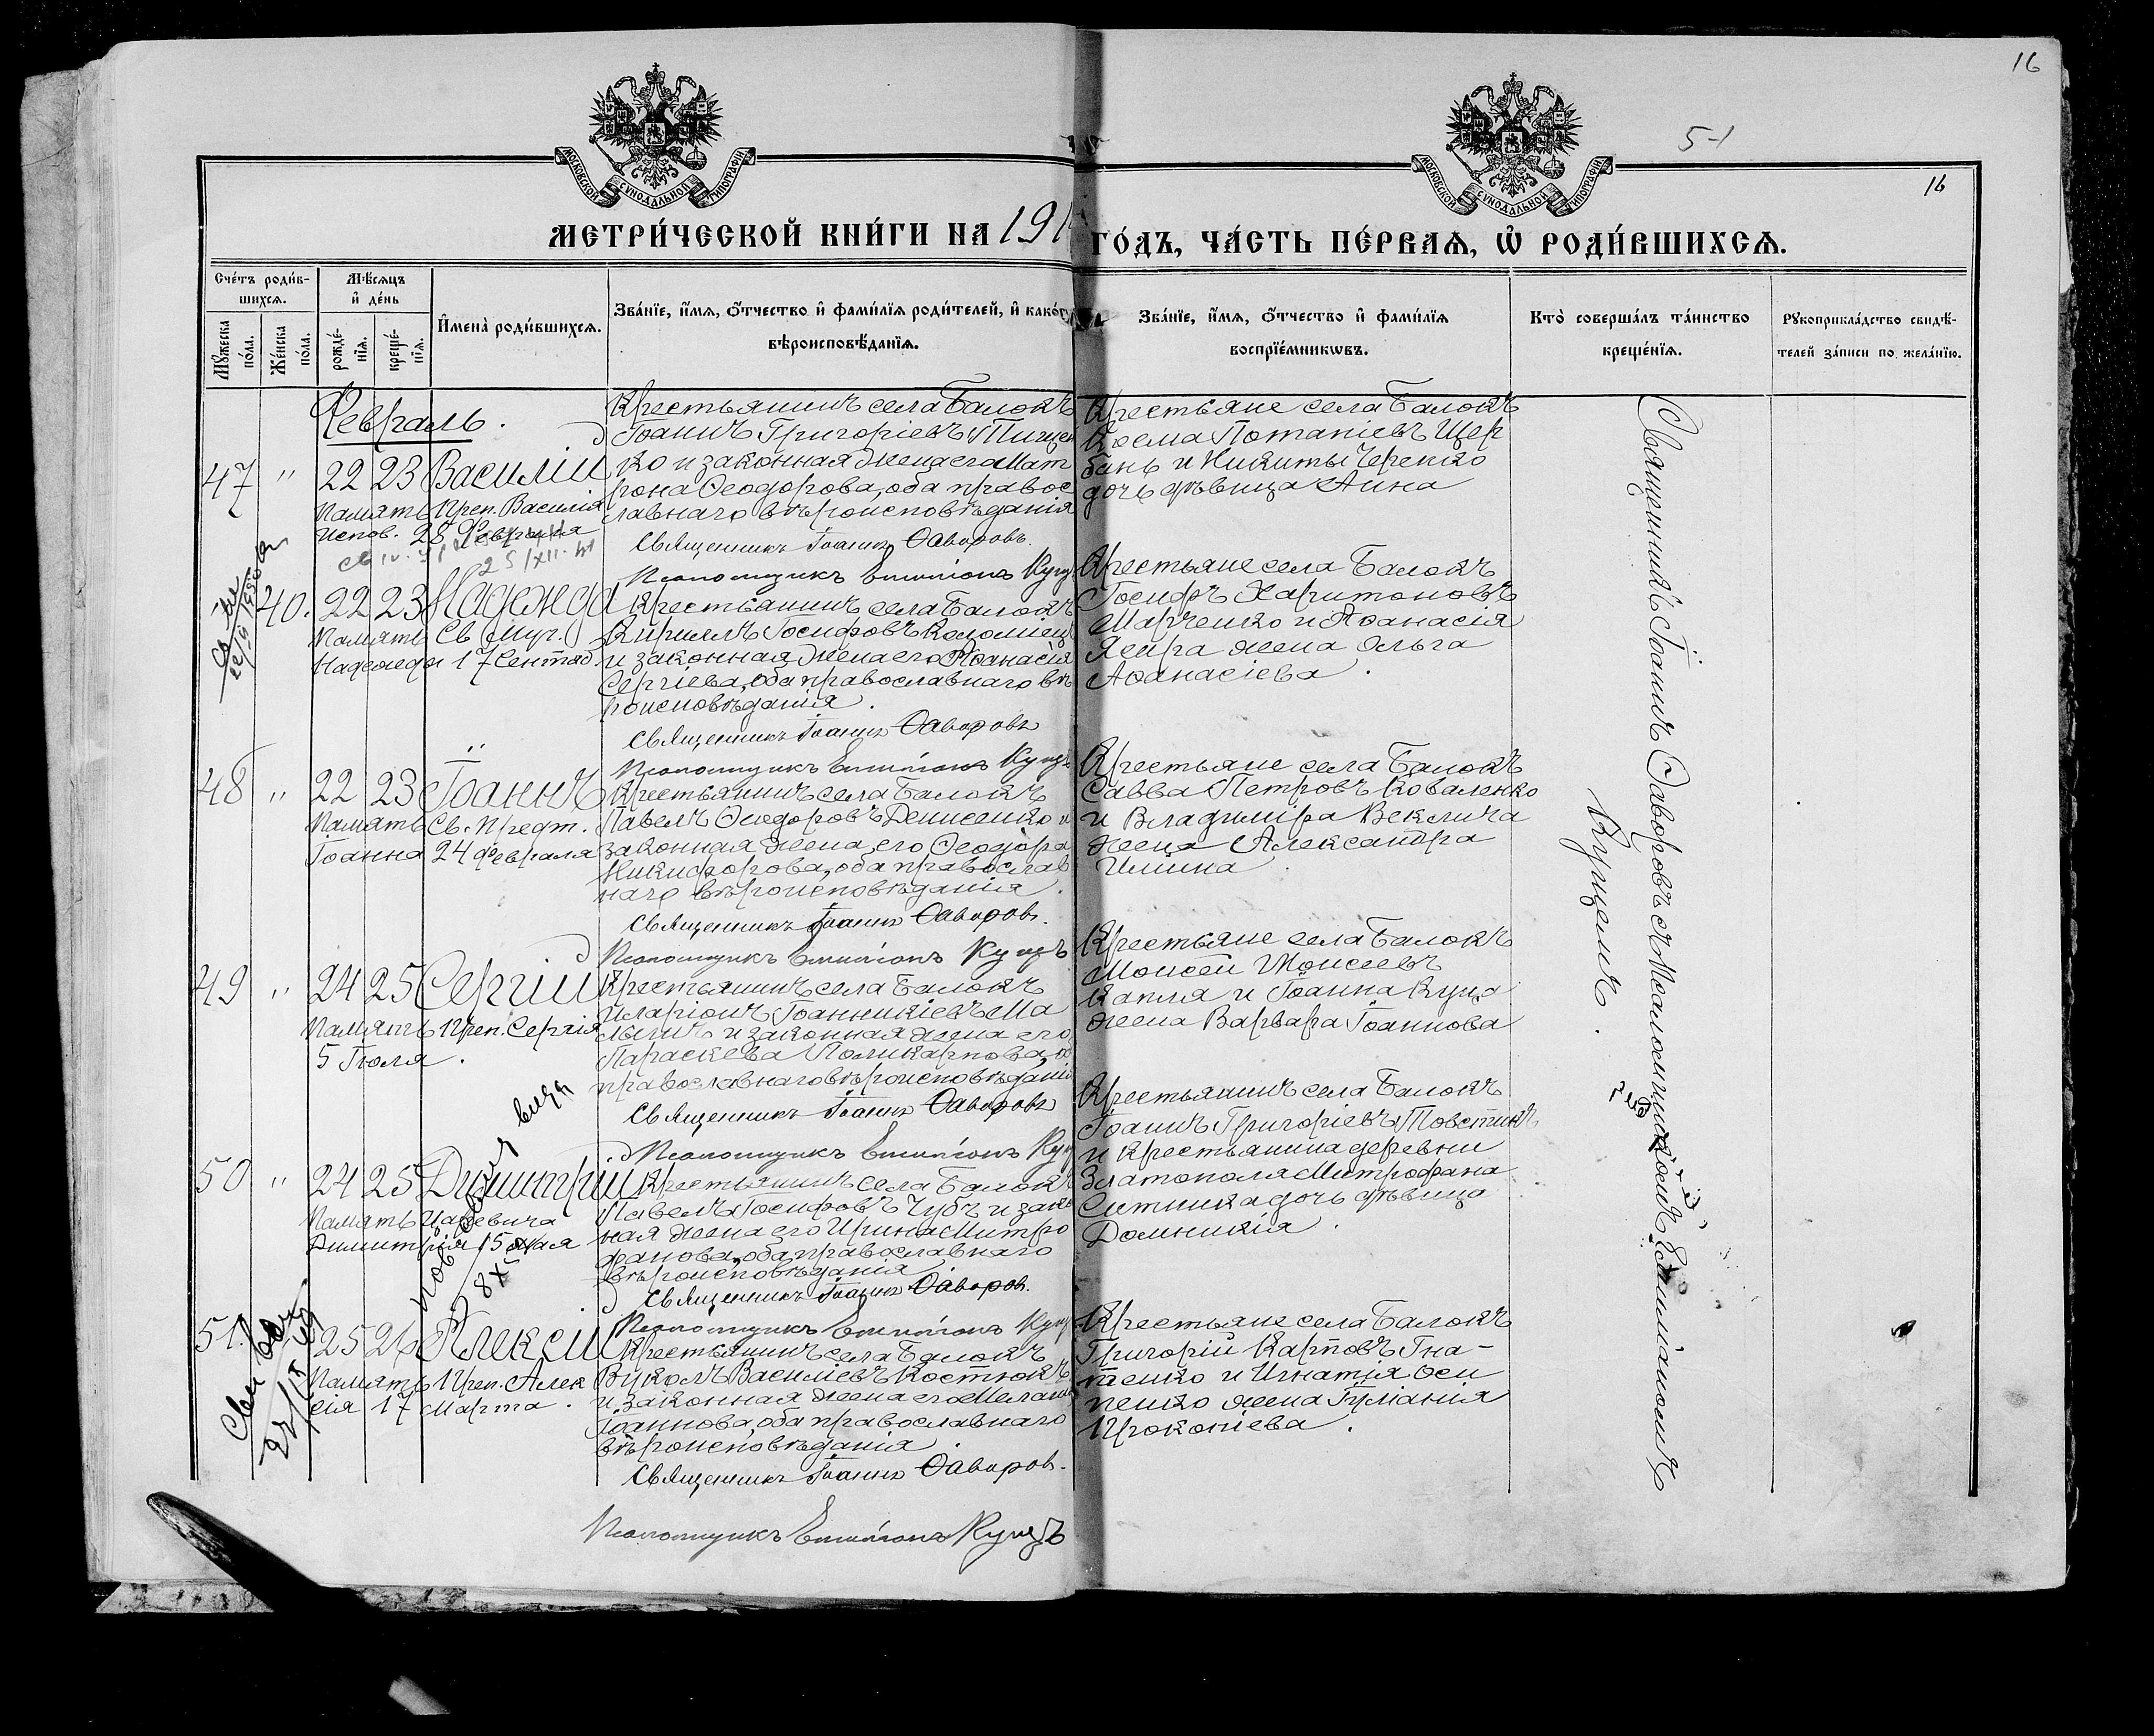 16
5-1
16
МОСКОВСКОЙ СѴНОДАЛЬНОЙ ТИПОГРАФІИ
МОСКОВСКОЙ СѴНОДАЛЬНОЙ ТИПОГРАФІИ
МЕТРИ́ЧЕСКОЙ КНИ́ГИ НА 191
ГО́ДЪ, ЧА́СТЬ ПЕ́РВАѦ, Ѡ҆ РОДИ́ВШИХСѦ.
Сче́тъ роди́в-
шихсѧ.
Мѣ́сѧцъ
и҆ де́нь
Мꙋ́жеска
по́ла.
Же́нска
по́ла.
рожде́-
нїѧ.
креще́-
нїѧ.
И҆мена̀ роди́вшихсѧ.
Зва́нїе, и҆́мѧ, ѻ҆́тчество и҆ фами́лїѧ роди́телей, и҆ како́гѡ
вѣроисповѣ́данїѧ.
Зва́нїе, и҆́мѧ, ѻ҆́тчество и҆ фами́лїѧ
воспрїе́мникѡвъ.
Кто̀ соверша́лъ та́инство
креще́нїѧ.
Рꙋкоприкла́дство свидѣ́-
телей за́писи по жела́нїю.
Февраль.
47 " 22 23 Василій
Память Преп. Василія
Испов. 28 Февраля
Крестьянинъ села Балокъ
Іоаннъ Григоріевъ Тищен
ко и законная жена его Мат
рона Ѳеодорова, оба правос
лавнаго вѣроисповѣданія
Священникъ Іоаннъ Ѳаворовъ.
Псаломщикъ Емиліанъ Куц
Крестьяне села Балокъ
Косма Потапіевъ Щер
бань и Никиты Черенко
дочь дѣвица Анна
25/XII
40. 22 23 Надежда
Память Св. Муч.
Надежды 17 Сентяб.
Крестьянинъ села Балокъ
Кириллъ Іосифовъ Коломіец
и законная жена его Аѳанасія
Сергіева, оба православнаго вѣ
роисповѣданія.
Священникъ Іоаннъ Ѳаворовъ
Псаломщикъ Емиліанъ Куц
Крестьяне села Балокъ
Іосифъ Харитоновъ
Марченко и Аѳанасія
жена Ольга
Аѳанасіева.
48 " 22 23 Іоаннъ
Память Св. Предт.
Іоанна 24 Февраля
Крестьянинъ села Балокъ
Павелъ Ѳеодоровъ Денисенко и
законная жена его Ѳеодора
Никифорова, оба православ
наго вѣроисповѣданія.
Священникъ Іоаннъ Ѳаворовъ.
Псаломщикъ Емиліанъ Куцъ
Крестьяне села Балокъ
Савва Петровъ Коваленко
и Владиміра Веклича
жена Александра
Ильина
49 " 24 25 Сергій
Память Преп. Сергія
5 Іюля.
Крестьянинъ села Балокъ
Иларіонъ Іоанникіевъ Ма
и законная жена его
Параскева Поликарпова, об
православнаго вѣроисповѣданія
Священникъ Іоаннъ Ѳаворовъ
Псаломщикъ Емиліанъ Куц
Крестьяне села Балокъ
Моисей Моисеевъ
Капля и Іоанна Куца
жена Варвара Іоаннова
50 " 24 25 Димитрій
Память Царевича
Димитрія 15 Мая
Крестьянинъ села Балокъ
Павелъ Іосифовъ Чубъ и закон
ная жена его Ирина Митро
фанова, оба православнаго
вѣроисповѣданія
Священникъ Іоаннъ Ѳаворов.
Псаломщикъ Емиліанъ Куц
Крестьянинъ села Балокъ
Іоаннъ Григоріевъ Товстикъ
и крестьянина деревни
Златополя Митрофана
Ситника дочь дѣвица
Домникія.
51. 25 26 Алексій
Память Преп. Алек
сія 17 Марта.
Крестьянинъ села Балокъ
Вуколъ Василіевъ Костюкъ
и законная жена его Мелані
Іоаннова, оба православнаго
вѣроисповѣданія.
Священникъ Іоаннъ Ѳаворов.
Псаломщикъ Емиліанъ Куцъ
Крестьяне села Балокъ
Григорій Карповъ Гна-
тенко и Игнатія Оси
пенко жена Іуліанія
Прокопіева.
Священникъ Іоаннъ Ѳаворовъ съ Псаломщикомъ Емиліаномъ
Куцемъ.